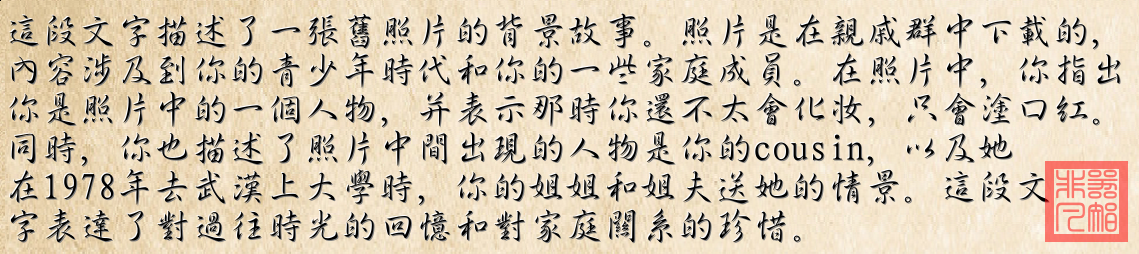 這段文字描述了一張舊照片的背景故事。照片是在親戚群中下載的，
內容涉及到你的青少年時代和你的一些家庭成員。在照片中，你指出
你是照片中的一個人物，并表示那時你還不太會化妝，只會塗口紅。
同時，你也描述了照片中間出現的人物是你的cousin，以及她
在1978年去武漢上大學時，你的姐姐和姐夫送她的情景。這段文
字表達了對過往時光的回憶和對家庭關系的珍惜。